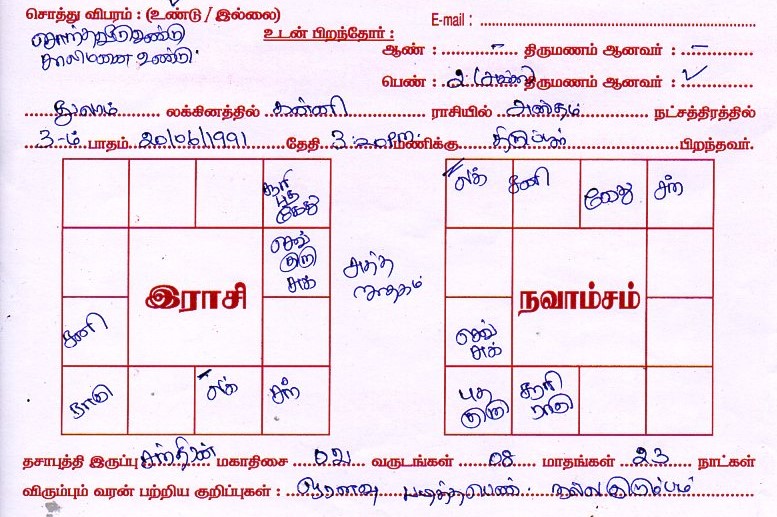 சொத்து விபரம் : (உண்டு / இல்லை)
E-mail :
சொந்தவீடு உண்டு
உடன் பிறந்தோர் :
காலிமனை உண்டு.
ஆண் : – திருமணம் ஆனவர் : –
பெண் : 2 திருமணம் ஆனவர் : ✓
துலாம் லக்கினத்தில் கன்னி ராசியில் அஸ்தம் நட்சத்திரத்தில்
3-ம் பாதம் 20/06/1991 தேதி 3.20 மணிக்கு திருப்பூர் பிறந்தவர்.
சூரி
புத
கேது
செவ்
குரு
சுக்
இராசி
சனி
ராகு
லக்
சந்
சுத்த
ஜாதகம்
லக்
சனி
கேது
சந்
நவாம்சம்
செவ்
சுக்
புத
குரு
சூரி
ராகு
தசாபுத்தி இருப்பு சந்திரன் மகாதிசை 02 வருடங்கள் 08 மாதங்கள் 23 நாட்கள்
விரும்பும் வரன் பற்றிய குறிப்புகள் : ஓரளவு படித்த பெண். நல்ல குடும்பம்